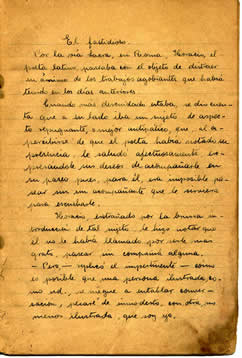 El fastidioso.
Por la vía sacra, en Roma, Horacio, el
poeta latino, paseaba con el objeto de distraer
su ánimo de los trabajos agobiante que había
tenido en los días anteriores.
Cuando más descuidado estaba, se dió cuen
ta que a su lado iba un sujeto de aspec
to repugnante, o mejor antipático, que, al a
percibirse de que el poeta había notado su
presencia, le saludó afectuosamente ex
presándole sus deseos de acompañarle en
su paseo pues, para él, era imposible pa
sear sin un acompañante que le sirviera
para escucharle.
Horacio extrañado por la brusca in
troducción de tal sujeto, le hizo notar que
él no le había llamado, por serle más
grato, pasear sin compañía alguna.
- Pero - replicó el impertinente - como
es posible que una persona ilustrada, co
mo ud., se niegue a entablar conver
sación, pecaré de inmodesto, con otra no
menos ilustrada, que soy yo.